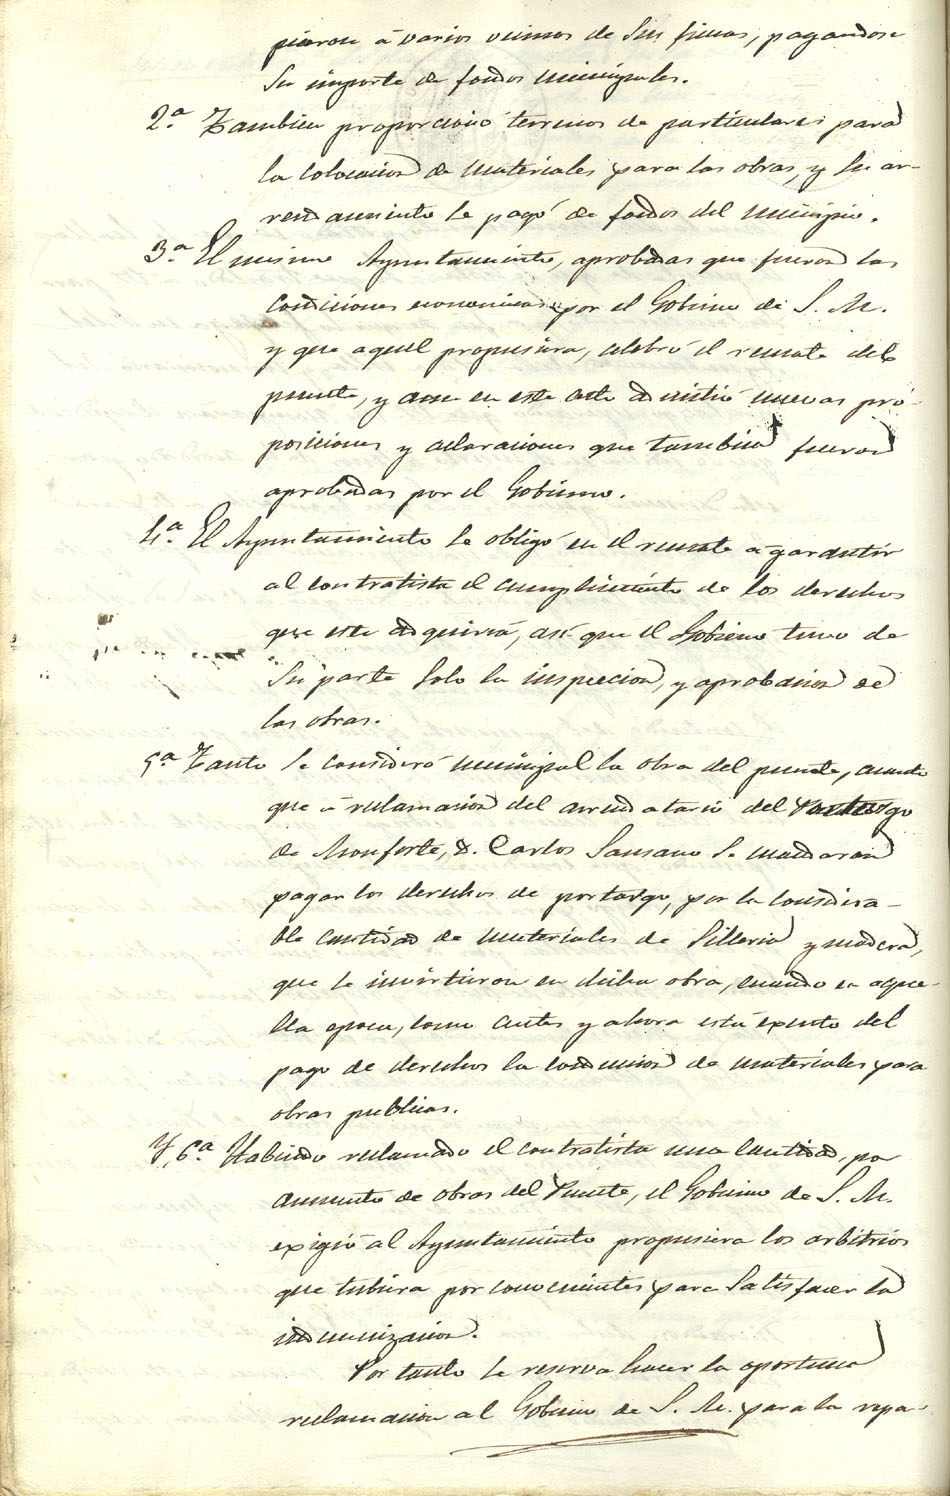 pieron á varios vecinos de sus fincas, pagandose
su importe de fondos municipales.
2.ª Tambien proporcionó terrenos de particulares para
la colocacion de materiales para las obras, y su ar-
rendamiento se pagó de fondos del municipio.
3.ª El mismo Ayuntamiento, aprobadas que fueron las
condiciones economicas por el Gobierno de S. M.
y que aquel propusiera, celebró el remate del
puente, y aun en este acto admitió nuevas pro-
posiciones y aclaraciones que tambien fueron
aprobadas por el Gobierno.
4.ª El Ayuntamiento se obligó en el remate á garantir
al contratista el cumplimiento de los derechos
que este adquiria, asi que el Gobierno tuvo de
su parte solo la inspeccion, y aprobacion de
las obras.
5.ª Tanto se consideró municipal la obra del puente, cuanto
que á reclamacion del arrendatario del Portazgo
de Monforte, D. Carlos Sansano se mandaron
pagar los derechos de portazgo, por la considera-
ble cantidad de materiales de silleria y madera,
que se invirtieron en dicha obra, cuando en aque-
lla epoca, como antes y ahora está exento del
pago de derechos la conduccion de materiales para
obras publicas.
Y, 6.ª Habiendo reclamado el contratista una cantidad, por
aumento de obras del Puente, el Gobierno de S. M.
exigió al Ayuntamiento propusiera los arbitrios
que tubiera por convenientes para satisfacer la
indemnizacion.
Por tanto se reserva hacer la oportuna
reclamacion al Gobierno de S. M. para la repa-